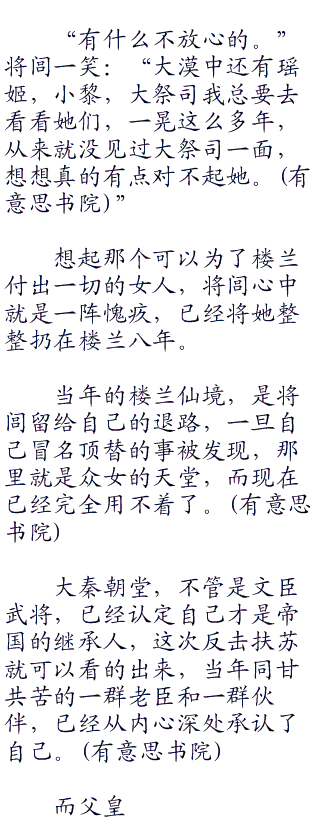 “有什么不放心的。”
将闾一笑：“大漠中还有瑶
姬，小黎，大祭司我总要去
看看她们，一晃这么多年，
从来就没见过大祭司一面，
想想真的有点对不起她。(有
意思书院)”
想起那个可以为了楼兰
付出一切的女人，将闾心中
就是一阵愧疚，已经将她整
整扔在楼兰八年。
当年的楼兰仙境，是将
闾留给自己的退路，一旦自
己冒名顶替的事被发现，那
里就是众女的天堂，而现在
已经完全用不着了。(有意思
书院)
大秦朝堂，不管是文臣
武将，已经认定自己才是帝
国的继承人，这次反击扶苏
就可以看的出来，当年同甘
共苦的一群老臣和一群伙
伴，已经从内心深处承认了
自己。(有意思书院)
而父皇